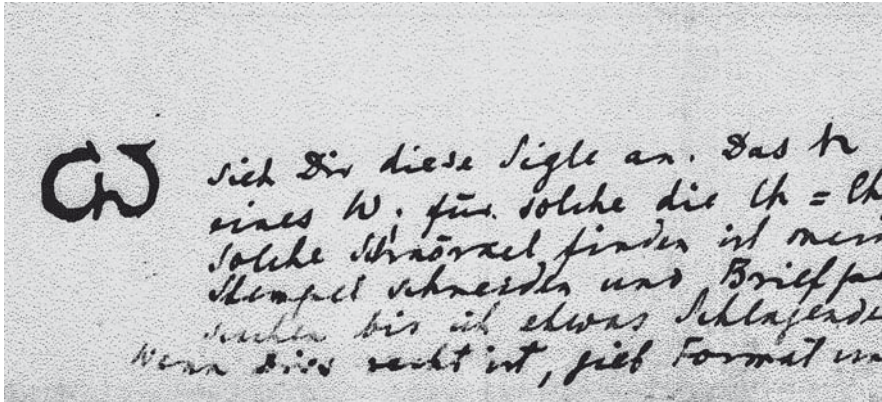 Sieh Dir diese Sigle an. Das h
eines W; für solche die Ch = Ch
solche Schnörkel finden ist mein
Stempel schneiden und Briefpa
suchen bis ich etwas Schlagende
Wenn Dies recht ist, gieb Format un